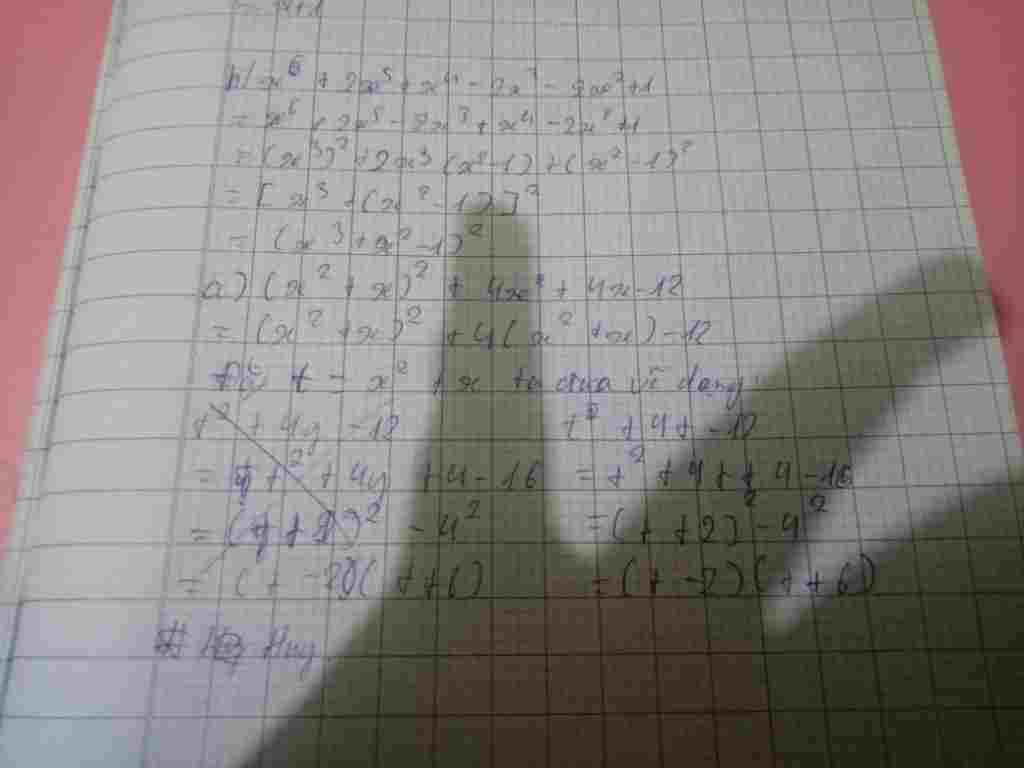 b/ x⁶ + 2x⁵ + x⁴ - 2x³ - 2x² + 1
= x⁶ + 2x⁵ - 2x³ + x⁴ - 2x² + 1
= (x³)² + 2x³ (x² - 1) + (x² - 1)²
= [x³ + (x² - 1)]²
= (x³ + x² - 1)²
a) (x² + x)² + 4x² + 4x - 12
= (x² + x)² + 4(x² + x) - 12
t = x² + x ta đưa về dạng
t² + 4y - 12
= t² + 4y + 4 - 16
= (t + 2)² - 4²
= (t - 2)(t + 6)
t² + 4t - 12
= t² + 4t + 4 - 16
= (t + 2)² - 4²
= (t - 2)(t + 6)
# Huy